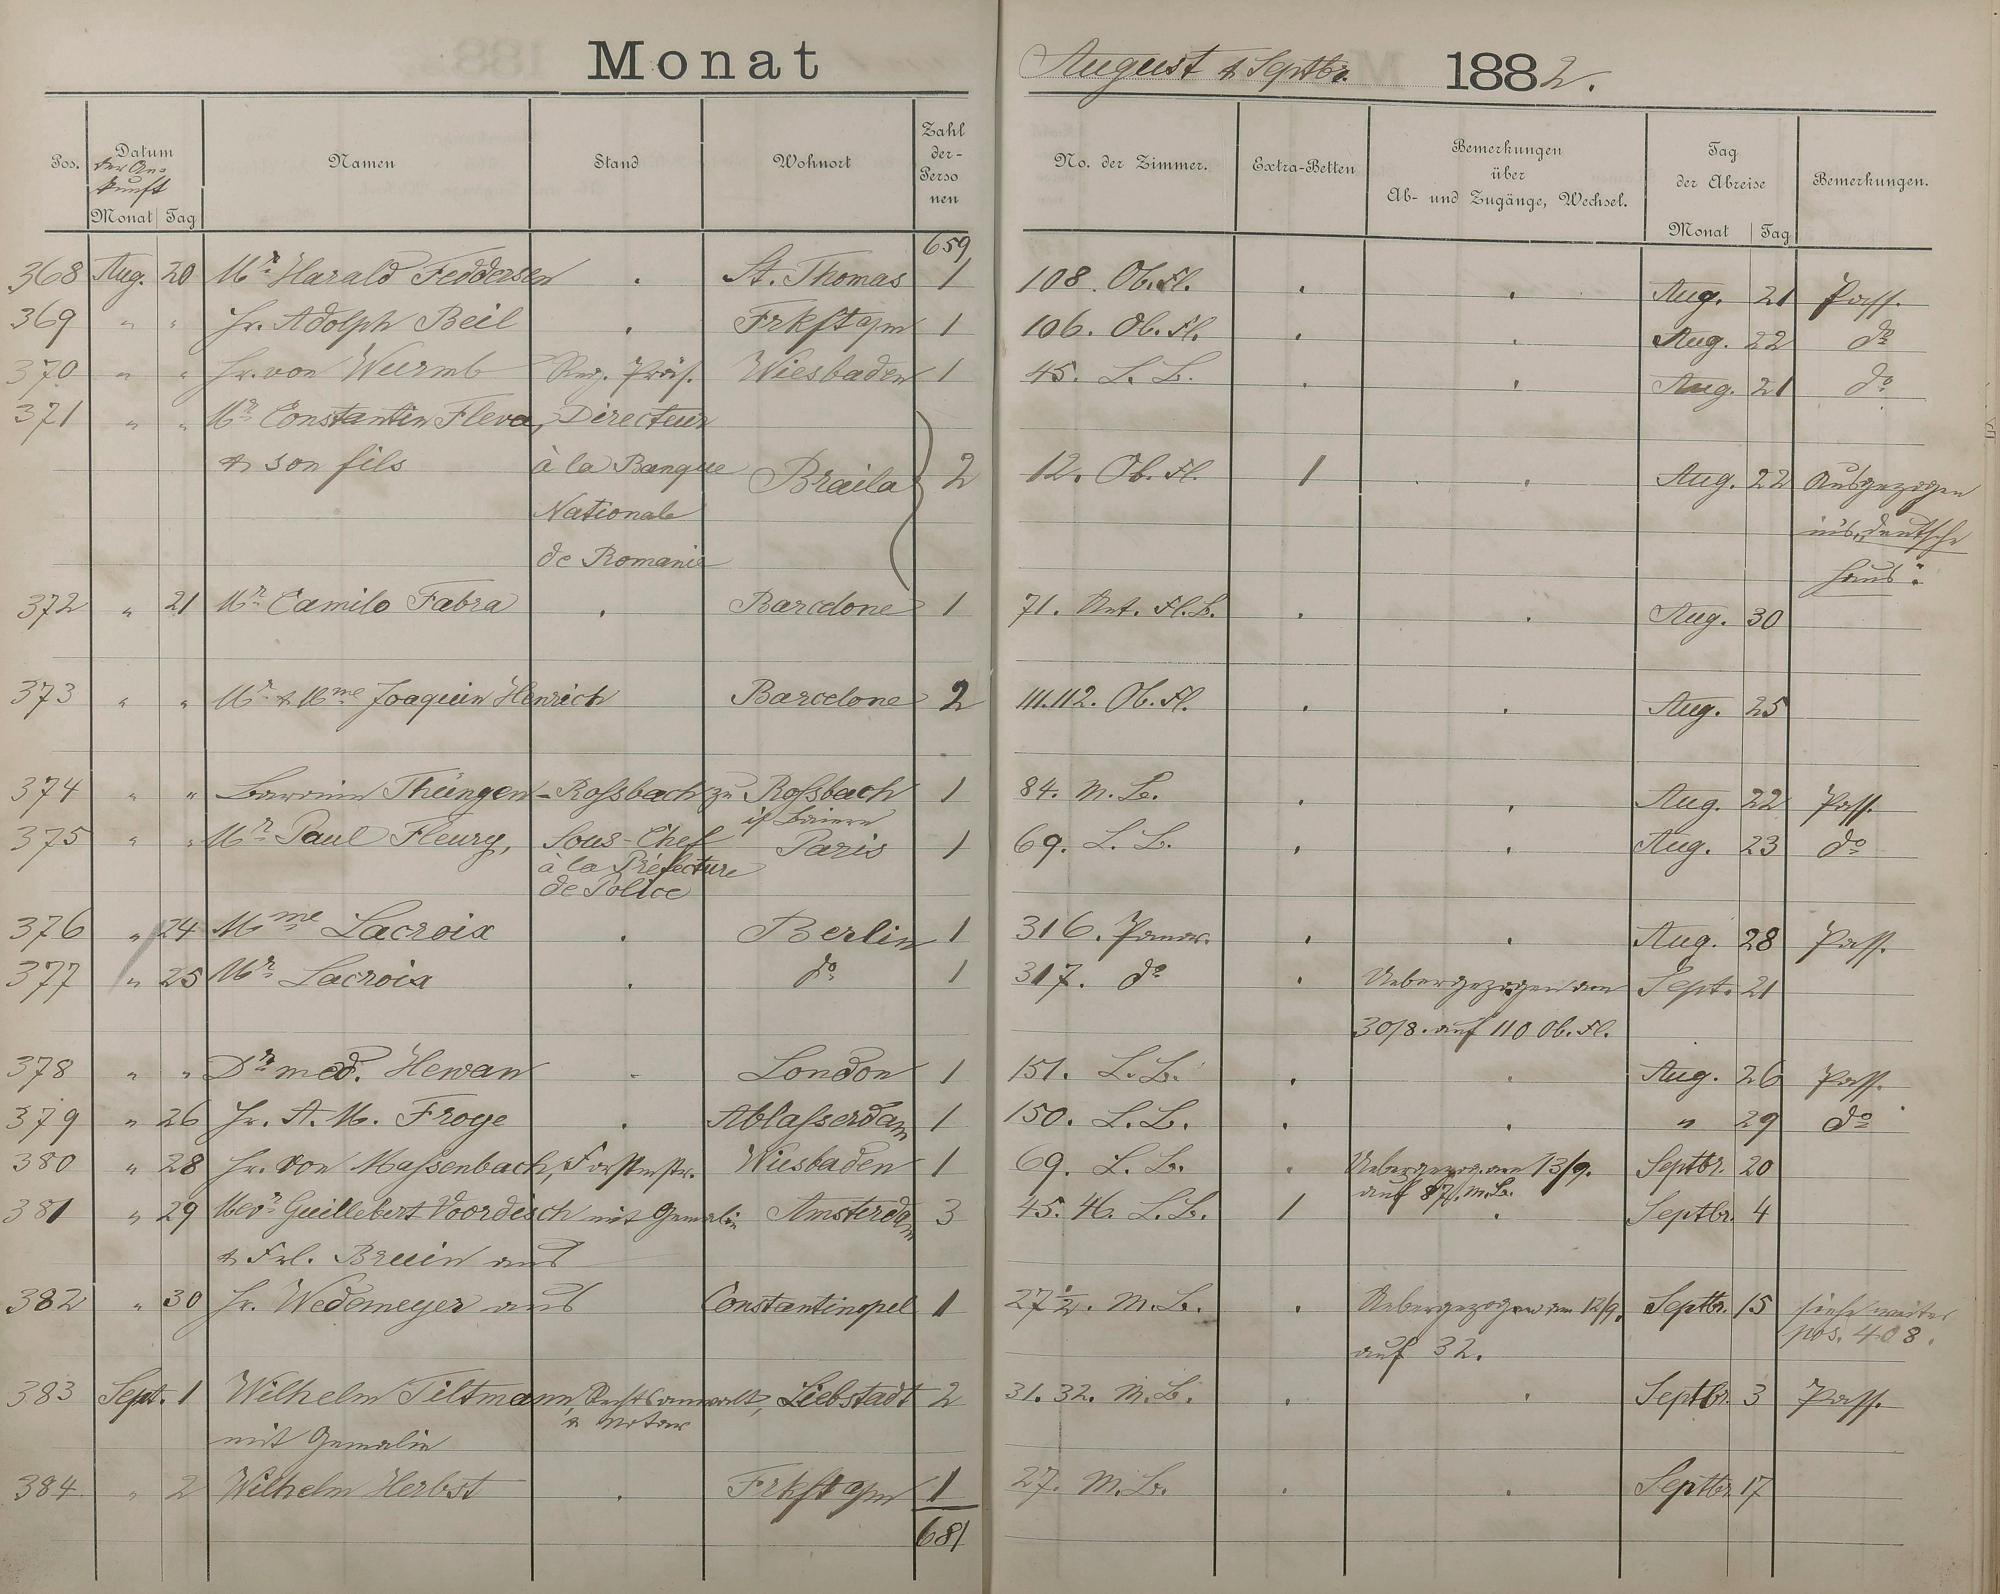 Monat August & Septbr. 1882.
Pos. Datum der Ankunft Monat Tag Namen Stand Wohnort Zahl der Personen No. der Zimmer. Extra-Betten Bemerkungen über Ab- und Zugänge, Wechsel. Tag der Abreise Monat Tag Bemerkungen.
659
368 Aug. 20 Mr. Harald Feddersen . St. Thomas 1 108. Ob. Fl. . . Aug. 21 Pass.
369 " " Hr. Adolph Beil . Frkft a/m 1 106. Ob. Fl. . . Aug. 22 do
370 " " Hr. von Wurmb Reg. Präs. Wiesbaden 1 45. L. B. . . Aug. 21 do
371 " " Mr. Constantin Fleva, Directeur
& son fils à la Banque Braila 2 12. Ob. Fl. 1 . Aug. 22 Ausgezogen
Nationale ins "deutsche
de Romanie Haus".
372 " 21 Mr. Camilo Fabra . Barcelone 1 71. Fl. B. . . Aug. 30
373 " " Mr. & Mme Joaquin Henrich Barcelone 2 111.112. Ob. Fl. . . Aug. 25
374 " " Baronin Thüngen-Roßbach zu Roßbach 1 84. M. B. . . Aug. 22 Pass.
Baiern
375 " " Mr. Paul Fleury, Sous-Chef Paris 1 69. L. B. . . Aug. 23 do
à la Préfecture
de Police
376 " 24 Mme Lacroix . Berlin 1 316. Panor. . . Aug. 28 Pass.
377 " 25 Mr. Lacroix . do 1 317. do . Uebergezogen am Sept. 21
30/8. auf 110 Ob. Fl.
378 " " Dr. med. Hewan . London 1 151. L. B. . . Aug. 26 Pass.
379 " 26 Hr. A. M. Froge . Ablasserdam 1 150. L. B. . . " 29 do
380 " 28 Hr. von Massenbach, Forstmstr. Wiesbaden 1 69. L. B. . Uebergezog. am 13/9. Septbr. 20
auf 87. M. B.
381 " 29 Guillebert Voordisch mit Gemalin Amsterdam 3 45. 46. L. B. 1 . Septbr. 4
& Frl. Bruin aus
382 " 30 Hr. Wedemeyer aus Constantinopel 1 27½. M. B. . Uebergezogen am 12/9. Septbr. 15 siehe weiter
auf 32. pos. 408.
383 Sept. 1 Wilhelm Tiltmann, Rechtsanwalt, Liebstadt 2 31. 32. M. B. . . Septbr. 3 Pass.
& Notar
mit Gemalin
384 " 2 Wilhelm Herbst . Frkft a/m 1 27. M. B. . . Septbr 17
681